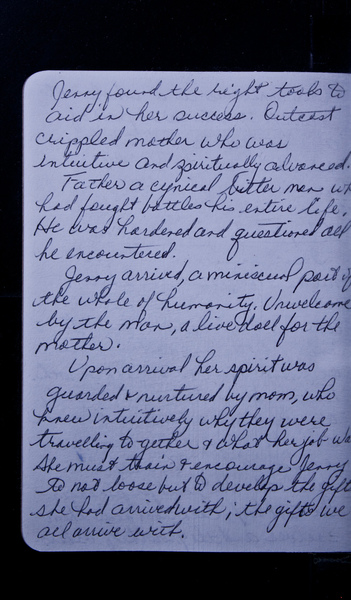 Jenny found the right tools to
aid in her success. Outcast
crippled mother who was
intuitive and spiritually advanced.
Father a cynical bitter man wh
had fought battles his entire life.
He was hardened and questioned all
he encountered.
Jenny arrived, a miniscual part of
the whole of humanity. Unwelcome
by the man, a live doll for the
mother.
Upon arrival her spirit was
guarded & nurtured by mom, who
knew intuitively why they were
travelling together & what her job wa
She must train & encourage Jenny
to not loose but to develop the gift
she had arrived with; the gifts we
all arrive with.